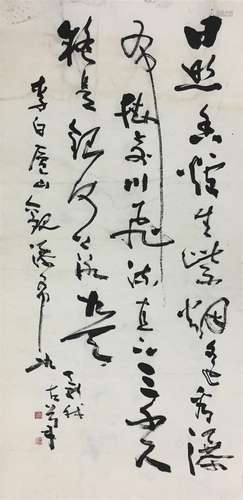 日照香炉生紫烟遥看瀑
布挂前川飞流直下三千尺
疑是银河落九天
李白庐山观瀑布